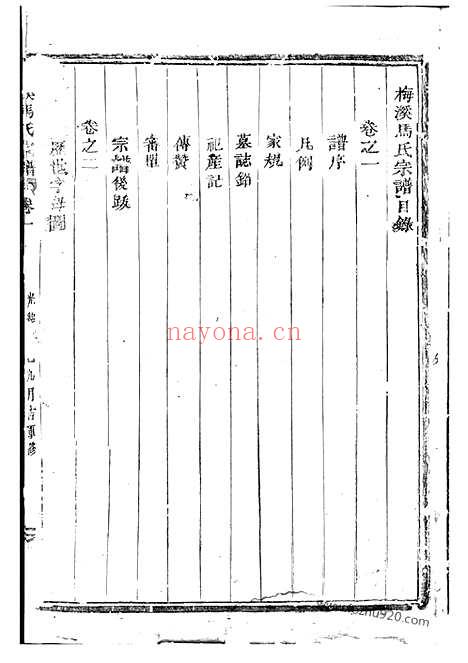 梅溪馬氏宗譜目錄
卷之一
譜序
凡例
家規
墓誌銘
祀産記
傳贊
宗譜後跋
卷之二
馬氏宗譜 卷一
九月吉重修
nayona.cn